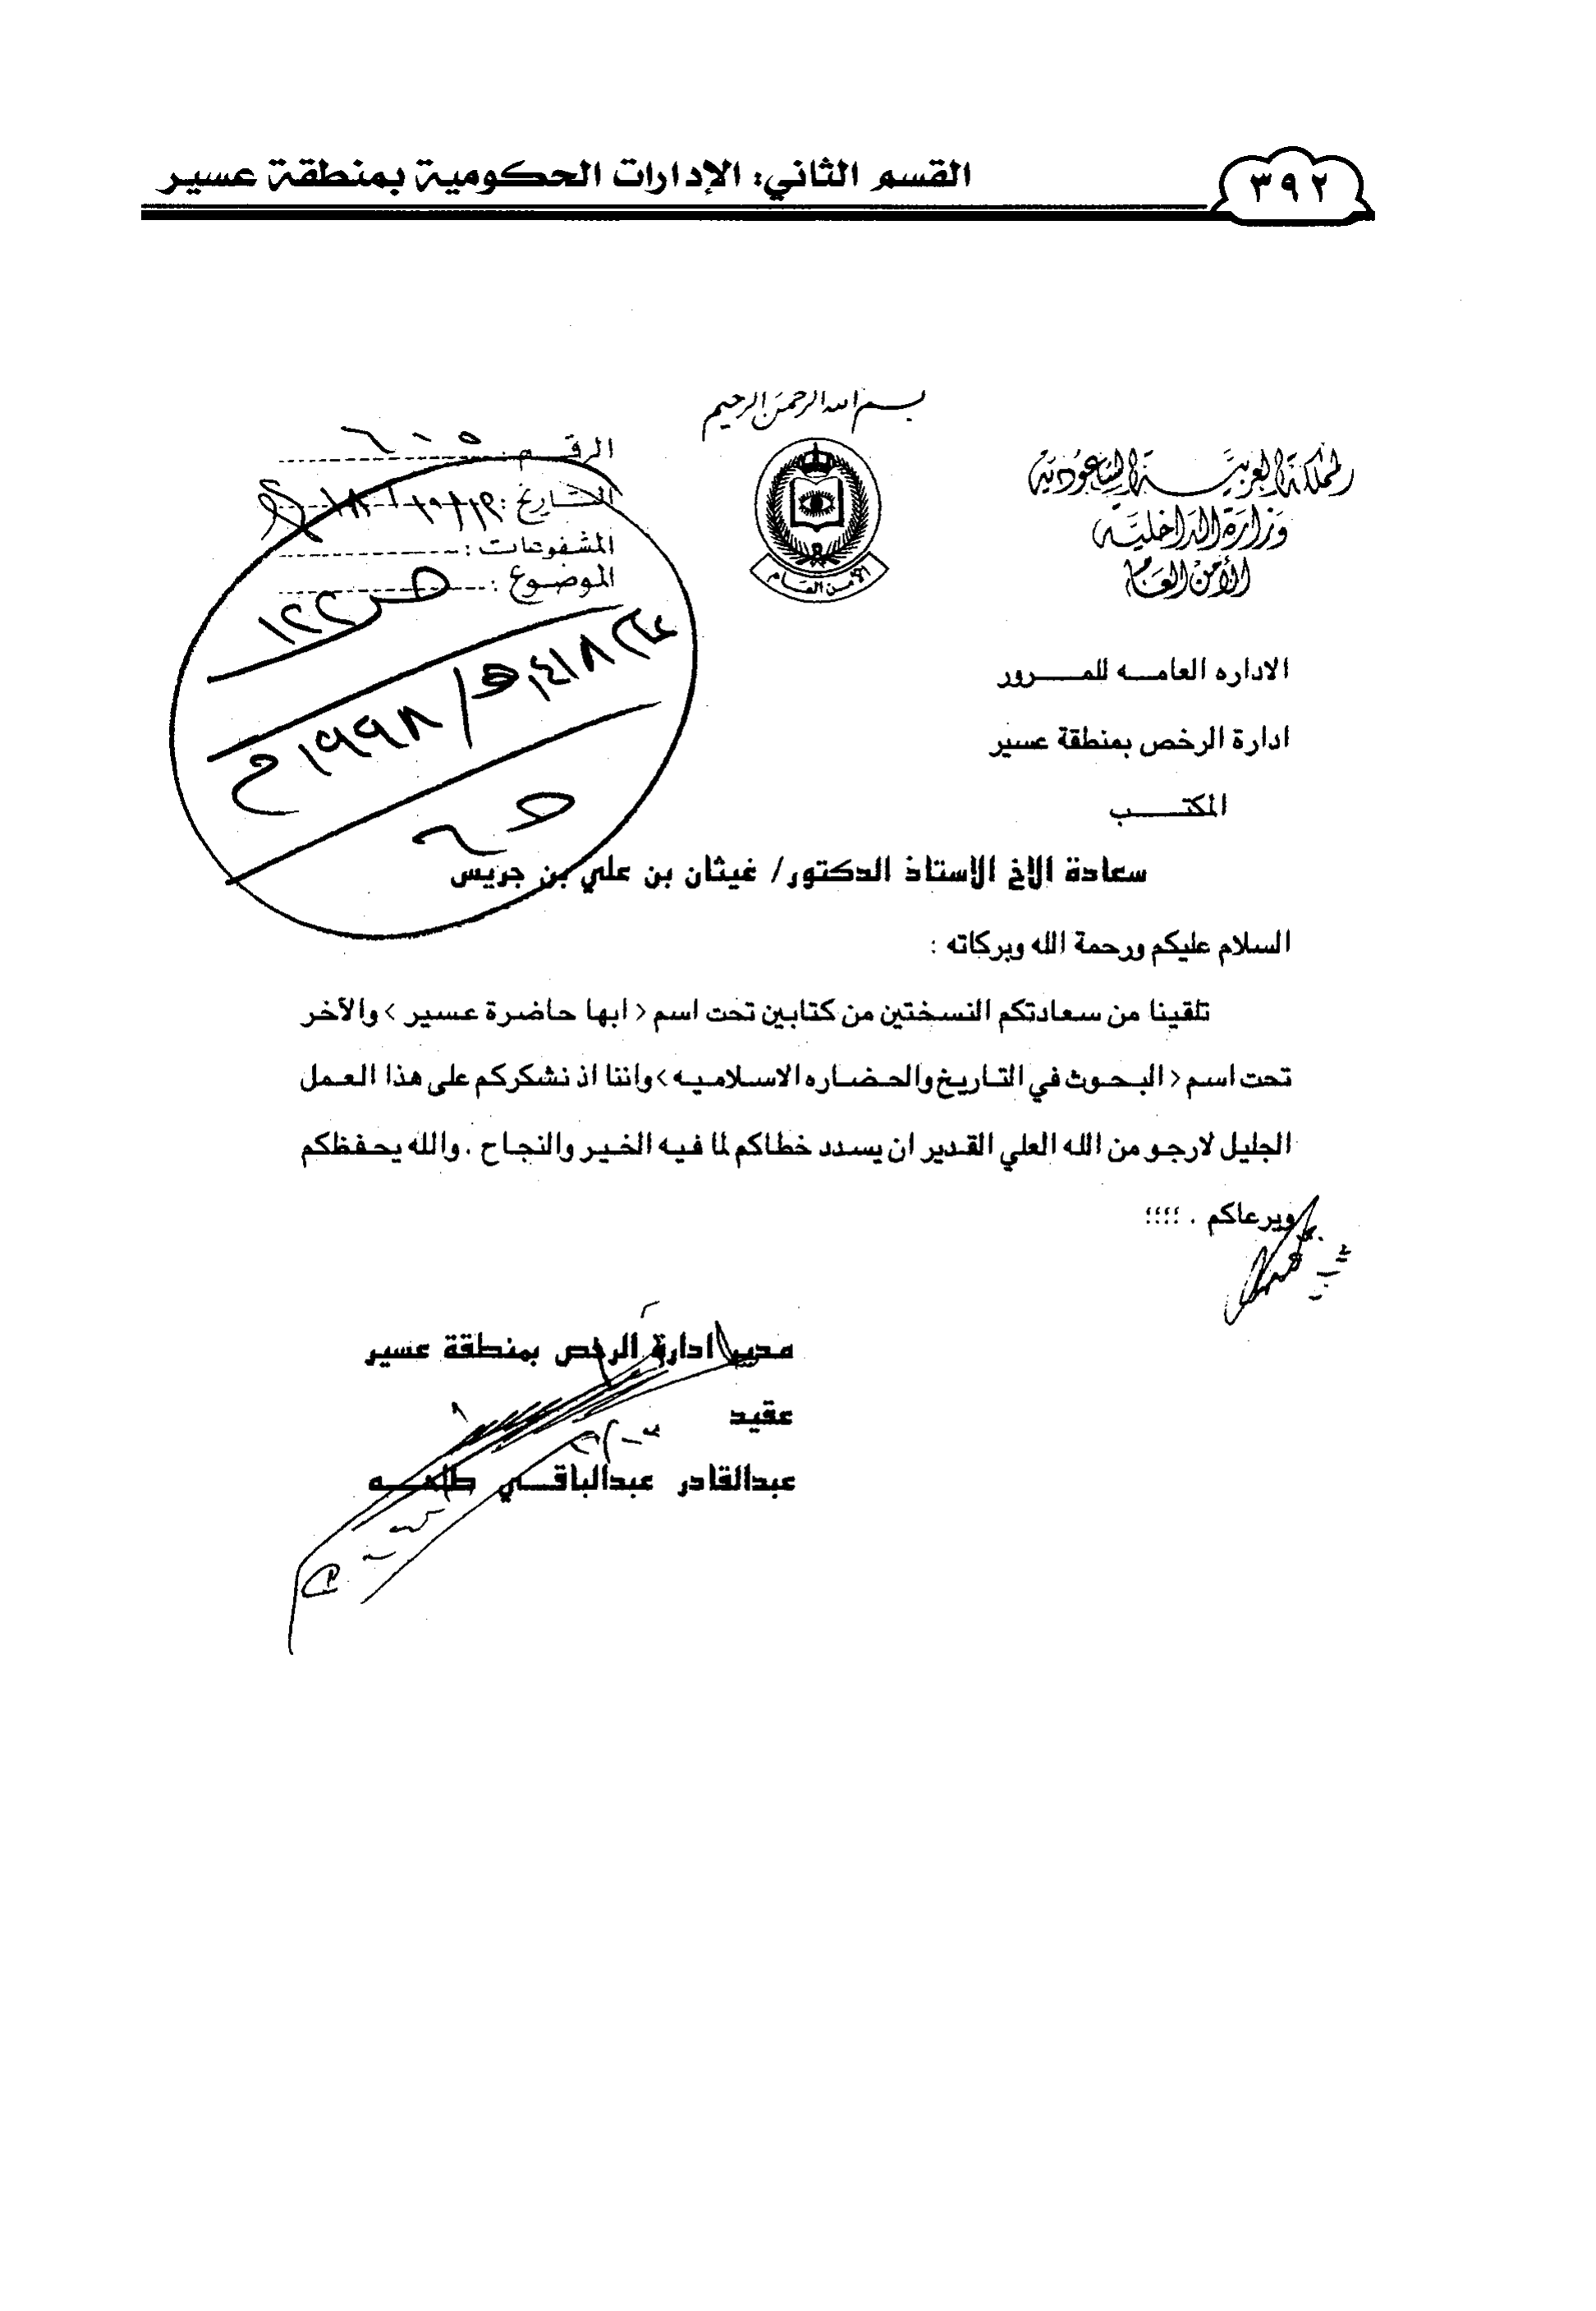 القسم الثاني: الإدارات الحكومية بمنطقة عسير
٣٩٢
بسم الله الرحمن الرحيم
المملكة العربية السعودية
وزارة الداخلية
الأمن العام
الأمن العام
الرقم :
التاريخ :
المشفوعات :
الموضوع :
ص ١٢٢
عام ١٤١٨هـ / ١٩٩٨م
الاداره العامه للمرور
ادارة الرخص بمنطقة عسير
المكتب
سعادة الاخ الاستاذ الدكتور/ غيثان بن علي بن جريس
السلام عليكم ورحمة الله وبركاته :
تلقينا من سعادتكم النسختين من كتابين تحت اسم < ابها حاضرة عسير > والآخر
تحت اسم < البحوث في التاريخ والحضاره الاسلاميه > واننا اذ نشكركم على هذا العمل
الجليل لارجو من الله العلي القدير ان يسدد خطاكم لما فيه الخير والنجاح . والله يحفظكم
ويرعاكم . ؛؛؛؛
مدير ادارة الرخص بمنطقة عسير
عقيد
عبدالقادر عبدالباقي طلحه